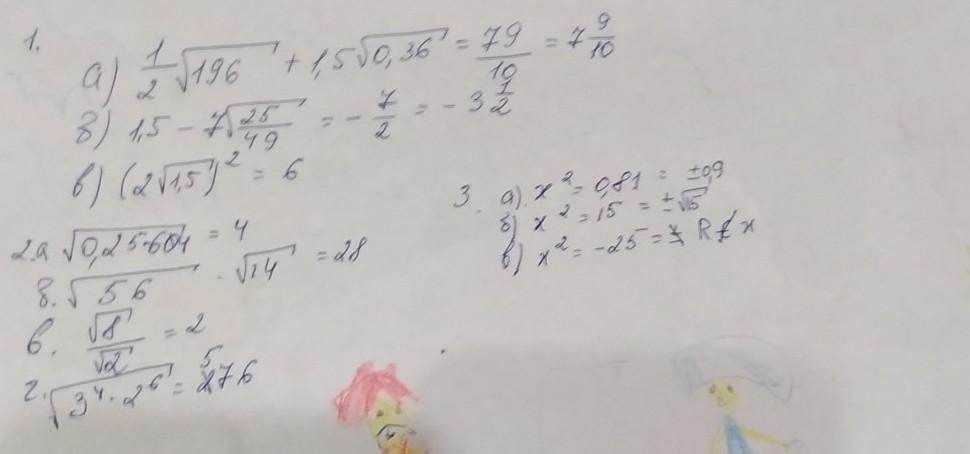 1.
а) 1/2 √196 + 1,5√0,36 = 79/10 = 7 9/10
б) 1,5 - 7√25/49 = - 7/2 = - 3 1/2
в) (2√1,5)² = 6
2.а √0,25·64 = 4
б. √56 · √14 = 28
в. √8/√2 = 2
г. √3⁴·2⁶ = 576
3. а). x² = 0,81 = ±0,9
б) x² = 15 = ±√15
в) x² = -25 = R ∉ x